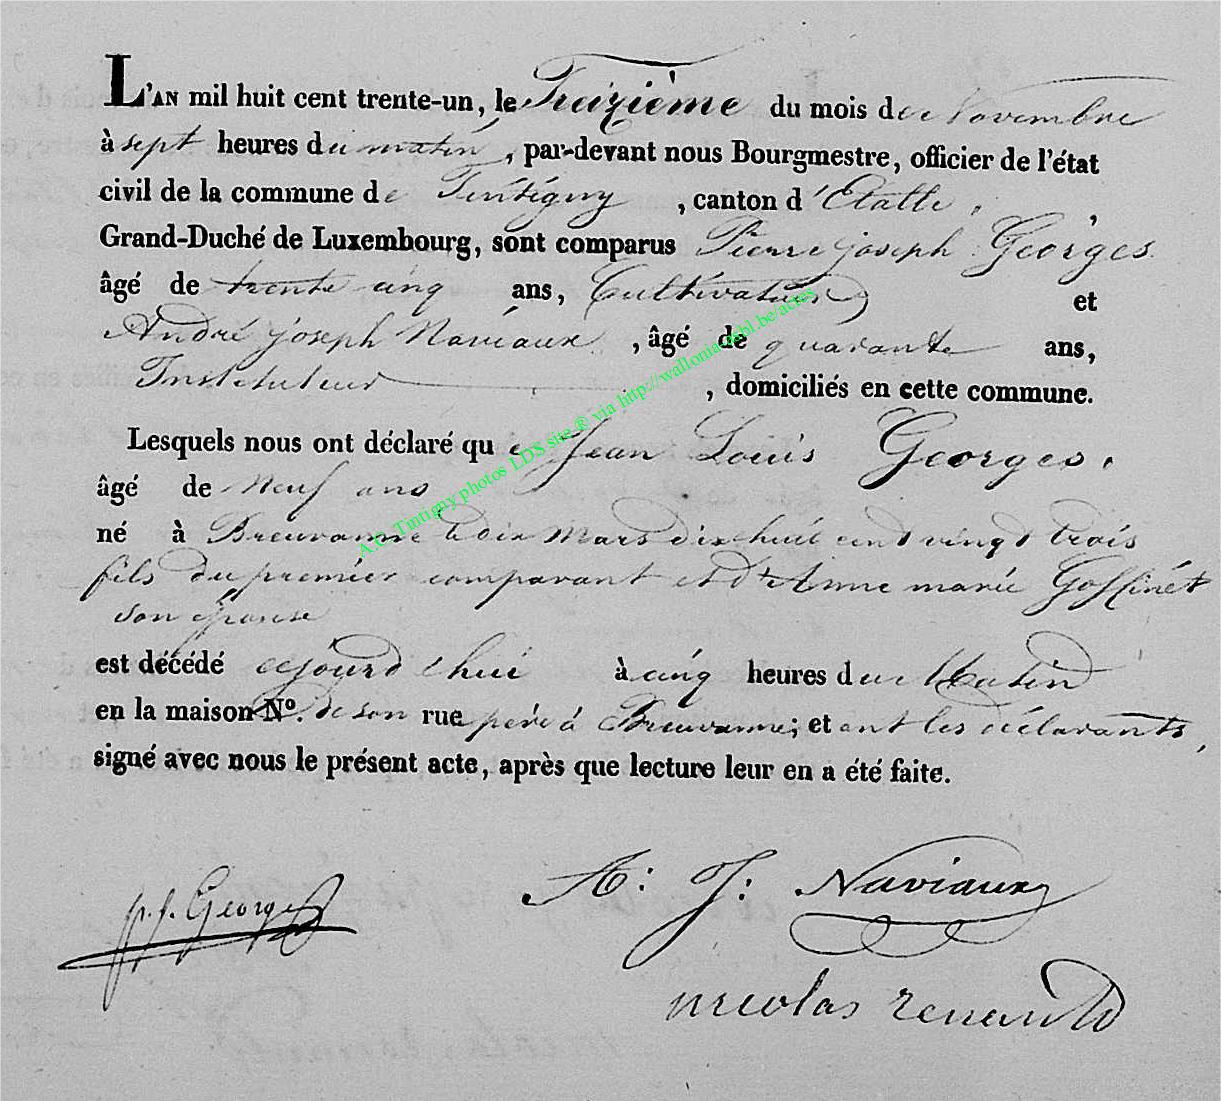 L'AN mil huit cent trente-un, le Treizième du mois de Novembre
à sept heures du matin, par-devant nous Bourgmestre, officier de l'état
civil de la commune de Tintigny, canton d'Etalle,
Grand-Duché de Luxembourg, sont comparus Pierre joseph Georges
âgé de trente cinq ans, Cultivateur et
André joseph Naviaux, âgé de quarante ans,
Instituteur, domiciliés en cette commune.
Lesquels nous ont déclaré que Jean Louis Georges,
âgé de Neuf ans
né à Breuvanne le dix Mars dix huit cent vingt trois
fils du premier comparant et d'Anne marie Goffinet
son épouse
est décédé aujourd'hui à cinq heures du Matin
en la maison N°. de son rue père à Breuvanne; et ont les déclarants,
signé avec nous le présent acte, après que lecture leur en a été faite.
A.C. Tintigny photos LDS site ® via http://wallonia-asbl.be/actes
p.j. Georges
A: J: Naviaux
nicolas renauld